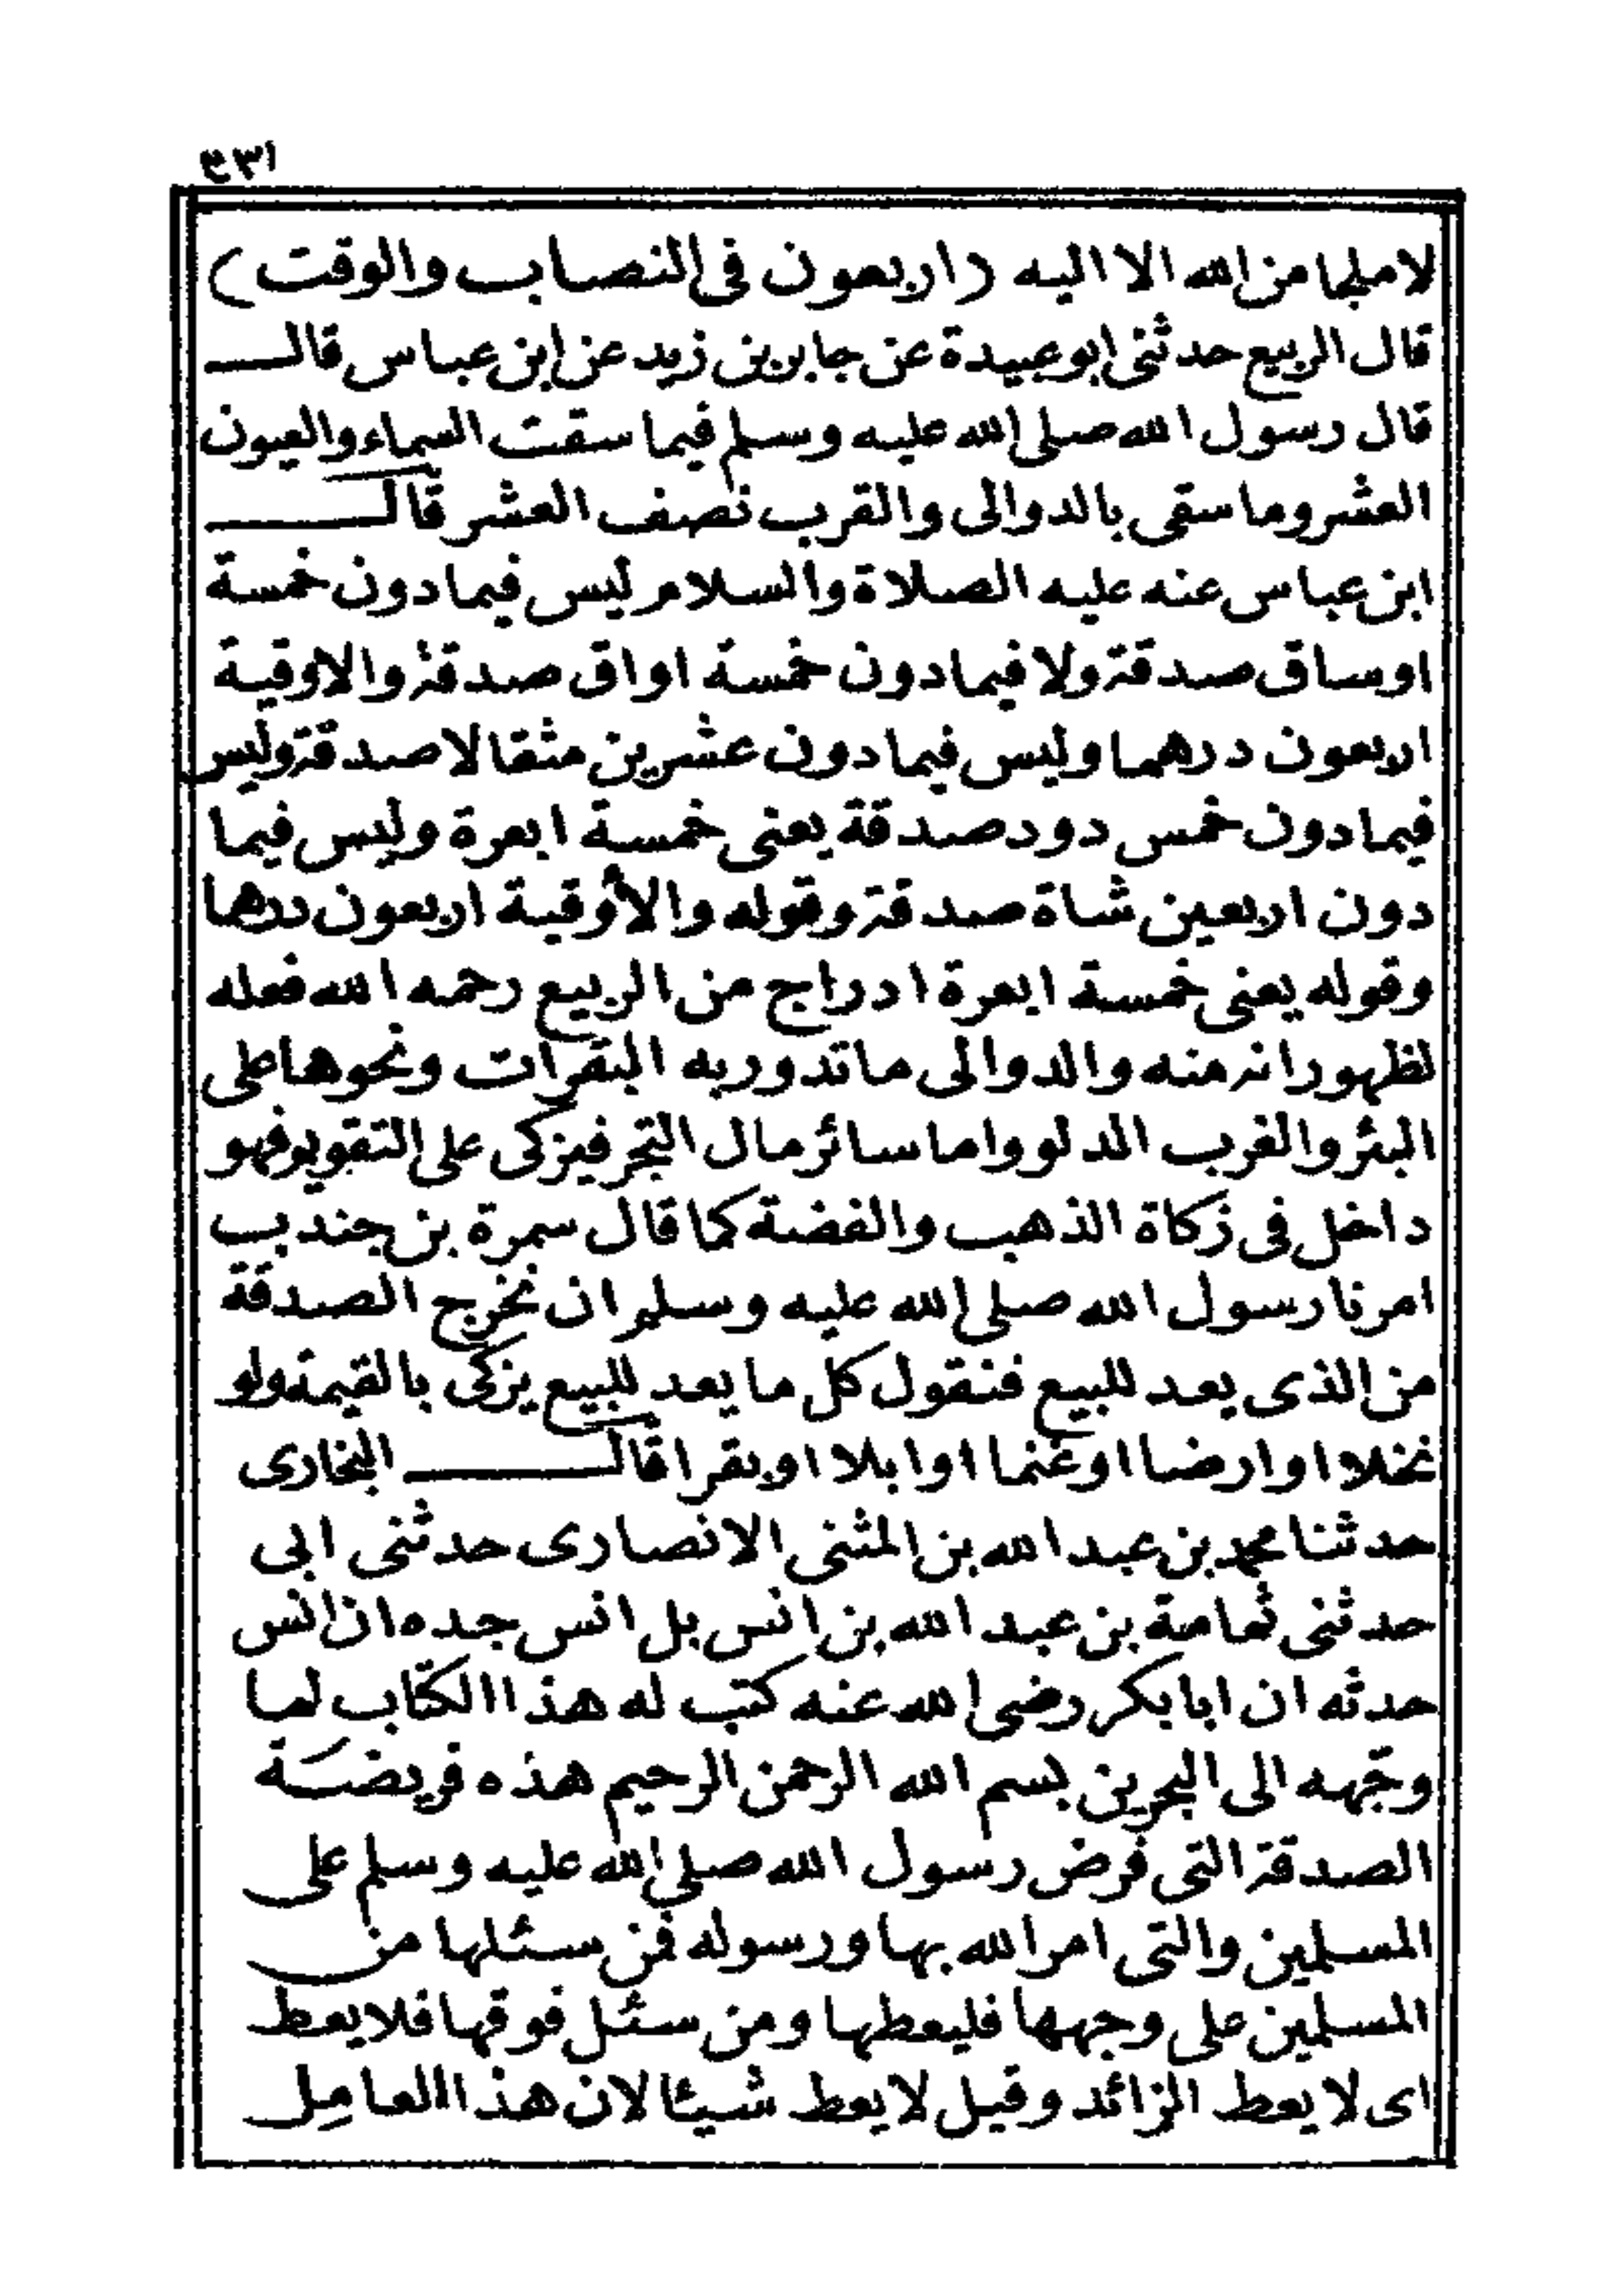 ١٣٩
لا ملجا من الله الا اليه (اربعون فى النصاب والوقت)
قال الربيع حدثنى ابو عبيدة عن جابر بن زيد عن ابن عباس قال
قال رسول الله صلى الله عليه وسلم فيما سقت السماء والعيون
العشر وما سقى بالدوالى والقرب نصف العشر قال
ابن عباس عنه عليه الصلاة والسلام ليس فيما دون خمسة
اوساق صدقة ولا فيما دون خمسة اواق صدقة والاوقية
اربعون درهما وليس فيما دون عشرين مثقالا صدقة وليس
فيما دون خمس دود صدقة يعنى خمسة ابعرة وليس فيما
دون اربعين شاة صدقة وقوله والأوقية اربعون درهما
وقوله يعنى خمسة ابعرة ادراج من الربيع رحمه الله فعله
لظهور انه منه والدوالى ما تدور به البقرات ونحوها على
البئر والغرب الدلو واما سائر مال التجر فيزكى على التقويم فهو
داخل فى زكاة الذهب والفضة كما قال سمرة بن جندب
امرنا رسول الله صلى الله عليه وسلم ان نخرج الصدقة
من الذى يعد للبيع فنقول كل ما يعد للبيع يزكى بالقيمة ولو
نخلا او ارضا او غنما او ابلا او بقرا قال البخارى
حدثنا محمد بن عبد الله بن المثنى الانصارى حدثنى ابى
حدثنى ثمامة بن عبد الله بن انس بل انس جده ان انس
حدثه ان ابا بكر رضى الله عنه كتب له هذا الكتاب لما
وجّهه الى البحرين بسم الله الرحمن الرحيم هذه فريضة
الصدقة التى فرض رسول الله صلى الله عليه وسلم على
المسلمين والتى امر الله بها ورسوله فمن سئلها من
المسلمين على وجهها فليعطها ومن سئل فوقها فلا يعط
اى لا يعط الزائد وقيل لا يعط شيئا لان هذا العامل